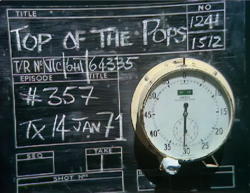 TITLE
TOP OF THE POPS
NO
1241
1512
T/R No NTC/6HT/64335
EPISODE / TITLE
#357
TX 14 JAN 71
SEQ
TAKE
SHOT No
60
5
10
15
20
25
30
35
40
45
50
55